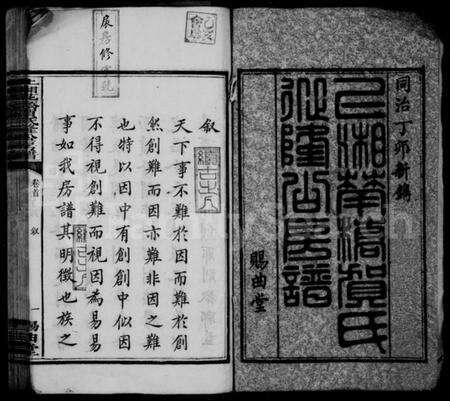 同治丁卯新鐫
上湘莘塔賀氏
從隆公房譜
賜曲堂
叙
天下事不難於因而難於創
然創難而因亦難非因之難
也特以因中有創創中似因
不得視創難而視因為易易
事如我房譜其明徵也族之
卷首
叙
一
賜曲堂